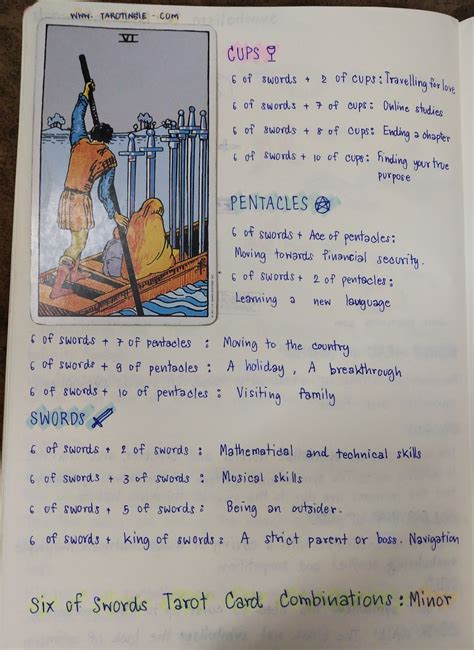 WWW. TAROTINGIE . COM
VI
CUPS
6 of swords + 2 of cups: Travelling for love
6 of swords + 7 of cups: Online studies
6 of swords + 8 of cups: Ending a chapter
6 of swords + 10 of cups: Finding your true
purpose
PENTACLES
6 of swords + Ace of pentacles:
Moving towards financial security.
6 of swords + 2 of pentacles:
Learning a new language
6 of swords + 7 of pentacles : Moving to the country
6 of swords + 8 of pentacles : A holiday , A breakthrough
6 of swords + 10 of pentacles : Visiting family
SWORDS
6 of swords + 2 of swords : Mathematical and technical skills
6 of swords + 3 of swords : Musical skills
6 of swords + 5 of swords : Being an outsider.
6 of swords + king of swords : A strict parent or boss. Navigation
Six of Swords Tarot Card Combinations : Minor